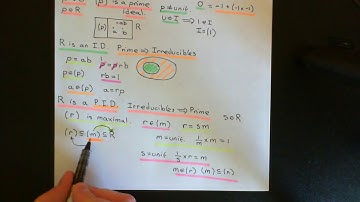 (p) is a prime
ideal.
p∈R
p≠unit
u∈I ⇒ 1∈I
I=(1)
0 = -1+(1×-1)
(p) ab
a b
R is an I.D. Prime ⇒ Irreducibles
p=ab
p=prb
p∈(p)
rb=1
a∈(p)
a=rp
R is a P.I.D. Irreducibles ⇒ Prime
s∈R
(r) is maximal.
r∈(m)
r=sm
(r)⊆(m)⊆R
m=unit. 1/m × m = 1
s=unit. 1/s × r = m
m∈(r) (m)⊆(r)